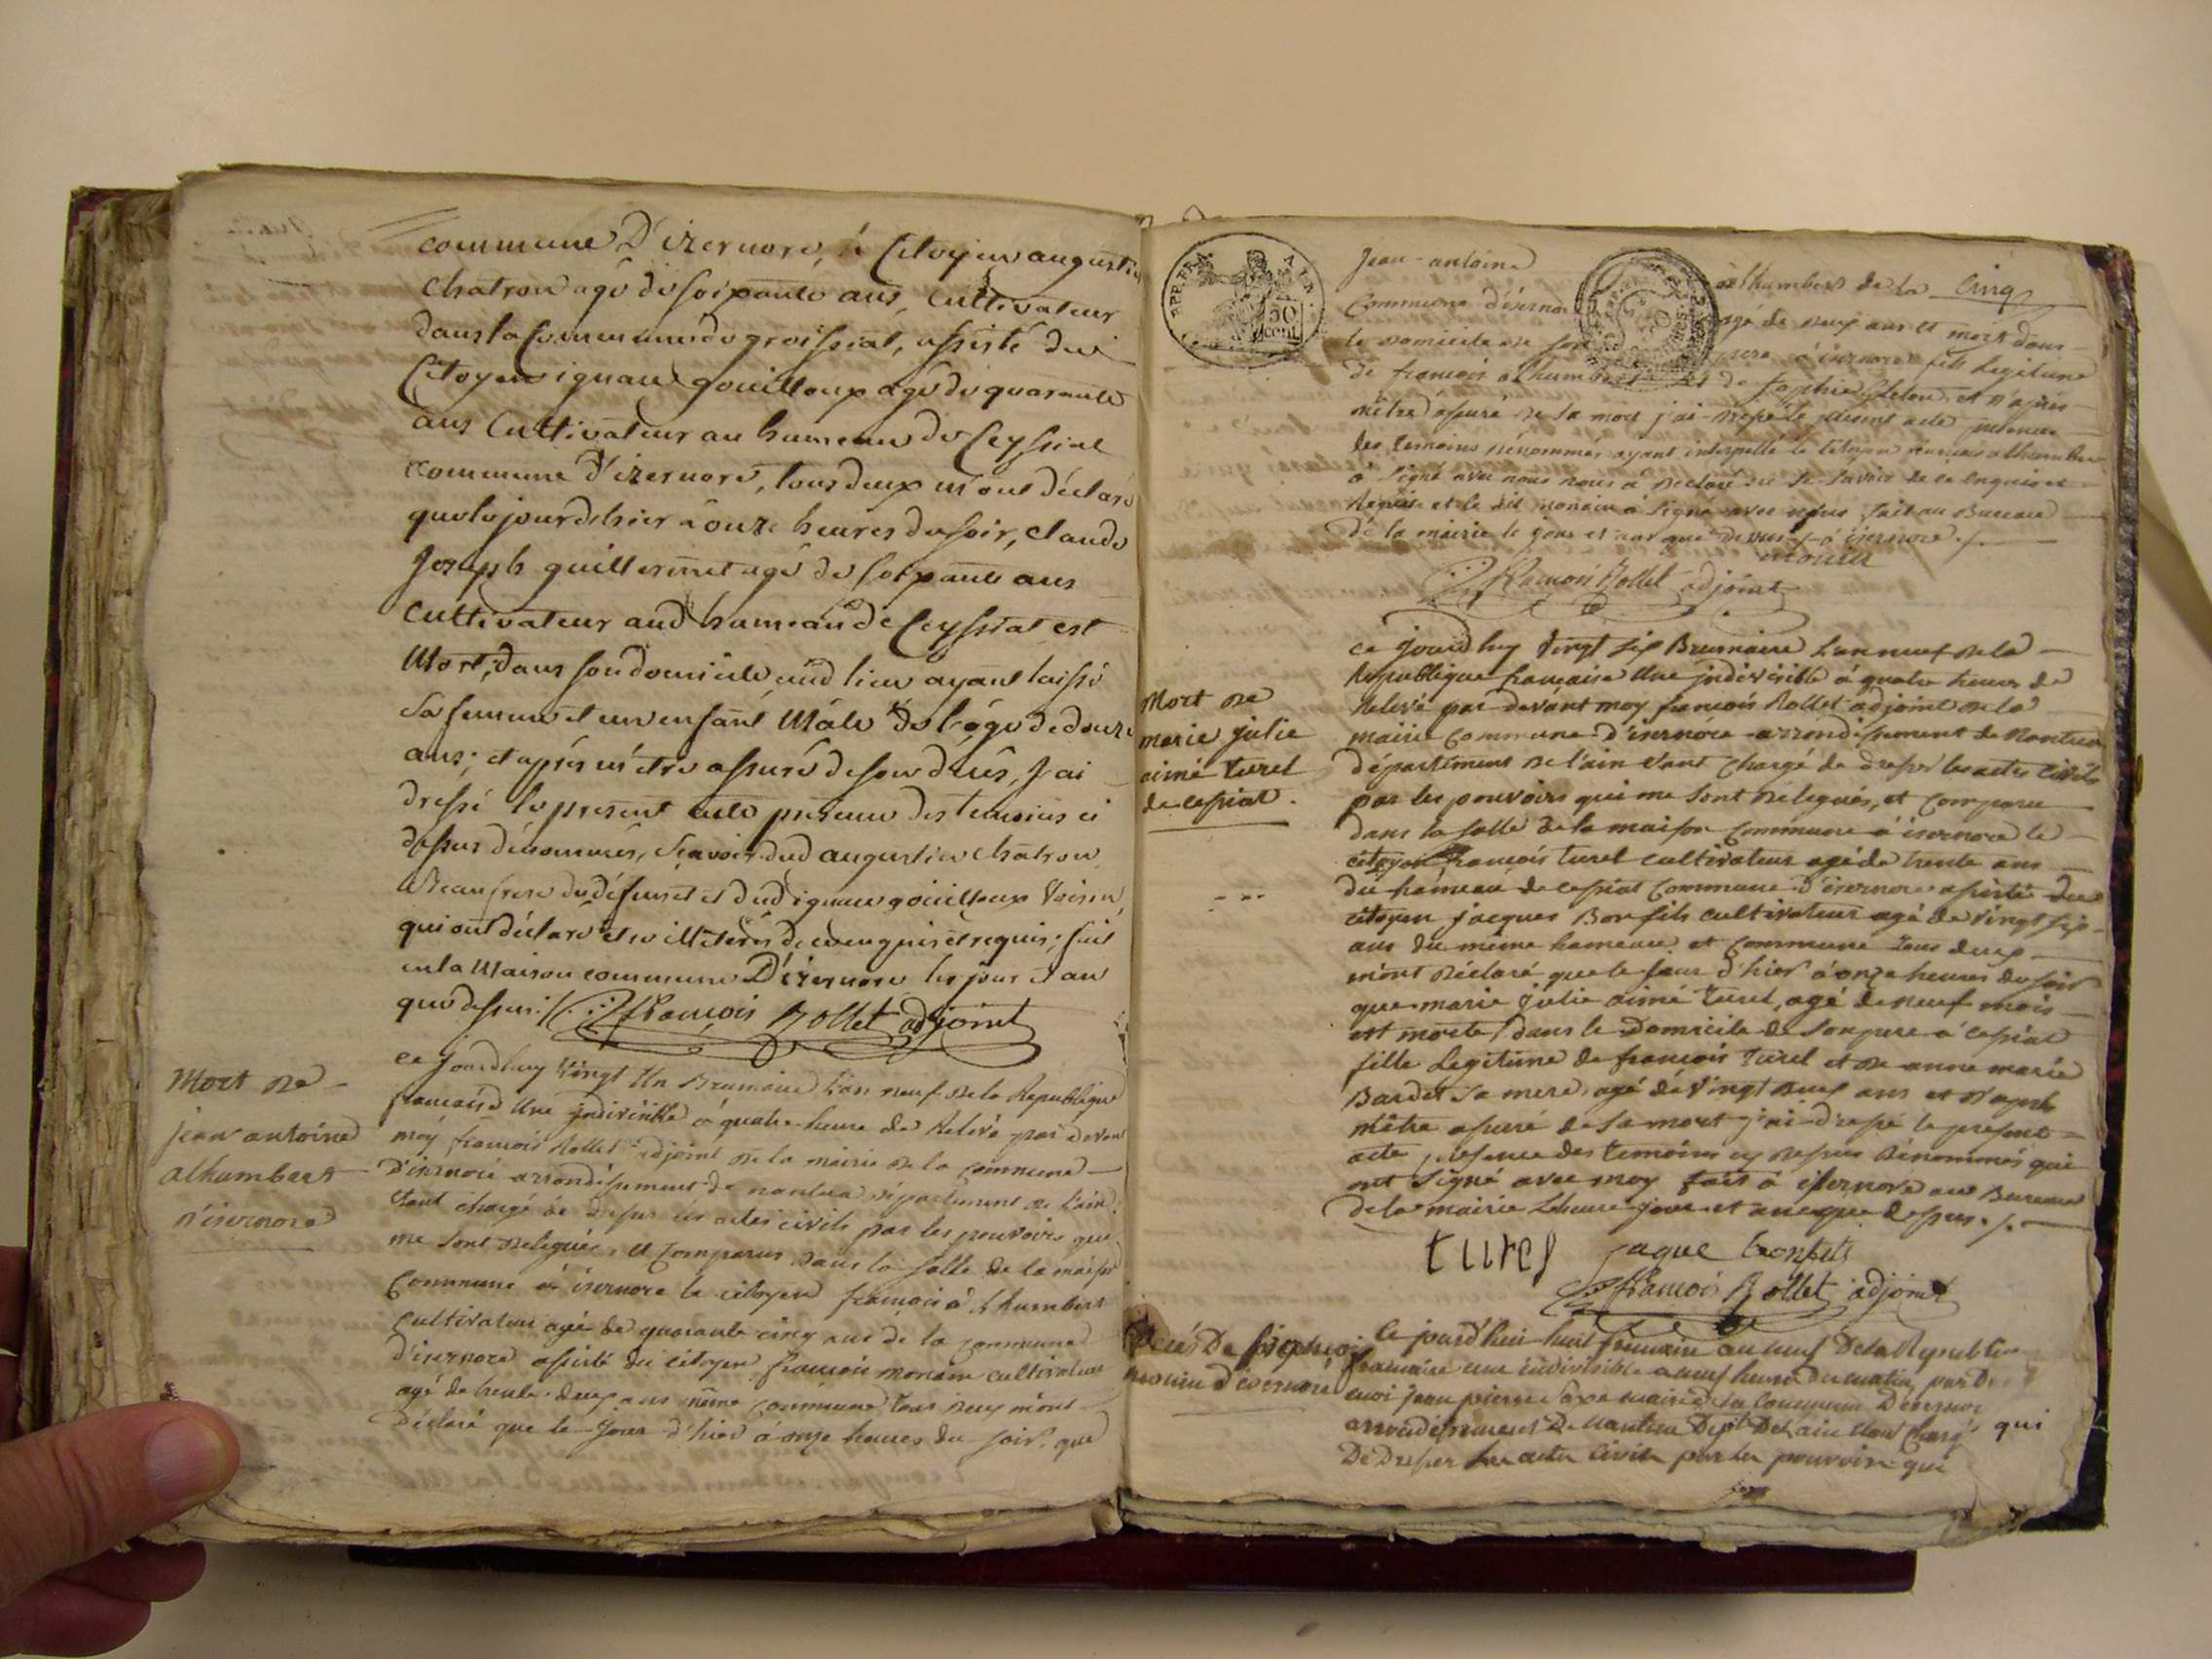 commune D'izernore, le Citoyen augustin
Chatron agé de soixante ans, Cultivateur
dans la Commune de groissiat, assisté du
Citoyen ignace gouilloux agé de quarante
ans Cultivateur au hameau de Ceyssiat
commune d'izernore, tous deux m'ont déclaré
que le jour d'hier à onze heures du soir, claude
Joseph guillermet agé de soixante ans
Cultivateur aud hameau de Ceyssiat est
Mort, dans son domicile aud lieu ayant laissé
sa femme et un enfant Mâle de l'âge de douze
ans; et après m'etre assuré de son décès, J'ai
dressé le present acte présence des temoins ci
dessus dénommés, sçavoir dud augustin chatron
Beaufrere du défunt et dud ignace gouilloux Voisin,
qui ont déclaré être illétérés de ce enquis et requis; fait
en la Maison commune D'izernore les jour et an
que dessus ./.
françois Rollet adjoint
Mort de
jean antoine
alhumbert
d'isernore
ce jourdhuy Vingt Un Brumaire l'an neuf de la Republique
francaise Une indivisible à quatre heure de Relevé par devant
moy francois Rollet adjoint de la mairie de la commune
D'isernore arrondissement de nantua département de l'ain
étant chargé de dresser les actes civils par les pouvoirs qui
me sont delegués, et comparus dans la salle de la maison
Commune à isernore le citoyen francois alhumbert
Cultivateur agé de quarante cinq ans de la commune
d'isernore assisté du citoyen francois monain cultivateur
agé de trente deux ans même commune tous deux m'ont
Déclaré que le Jour d'hier à onze heures du soir que
Jean-antoine alhumbert de la Cinq
Commune d'isernore agé de deux ans est mort dans
le domicile de son pere à isernore fils legitime
de francois alhumbert et de et d'après
m'etre assuré de sa mort j'ai dressé le present acte presence
des temoins dénommés ayant interpellé le Citoyen francois alhumbert
à signé avec nous nous à déclaré ne le savoir de ce enquis et
Requis et le dit monain à signé avec nous fait au Bureau
de la mairie le jour et an que dessus à isernore ./.
monain
françois Rollet adjoint
Mort de
marie julie
aimé turel
de cessiat.
ce jourdhuy Vingt six Brumaire l'an neuf de la
Republique francaise Une indivisible à quatre heures de
Relevé par devant moy francois Rollet adjoint de la
mairie Commune d'isernore arrondissement de Nantua
département de l'ain étant chargé de dresser les actes civils
par les pouvoirs qui me sont delegués, et comparu
dans la salle de la maison Commune à isernore le
citoyen francois turel cultivateur agé de trente ans
du hameau de cessiat Commune d'isernore assisté du
citoyen jacques Bonfils cultivateur agé de vingt six
ans du même hameau et Commune tous deux
m'ont déclaré que le jour d'hier à onze heures du soir
que marie julie aimé turel, agé de neuf mois
est morte dans le domicile de son pere à cessiat
fille legitime de francois turel et de anne marie
Bardet sa mere agé de vingt neuf ans et d'après
m'être assuré de sa mort j'ai dressé le present
acte presence des temoins cy dessus dénommés qui
ont signé avec moy fait à isernore au Bureau
de la mairie l'heure jour et an que dessus ./.
turel jaque bonfils
françois Rollet adjoint
Décés De
monin d'isernore
Ce jourd'hui huit frimaire an neuf De la Republique
francaise une indivisible a neuf heures du matin, par D
moi jean pierre maire de la Commune D'isernore
arrondissement De Nantua Dept De L'ain étant chargé qui
De Dresser les actes Civils par les pouvoirs qui